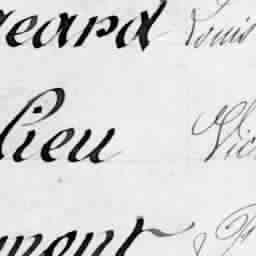 geard Louis
lieu Vic
mont